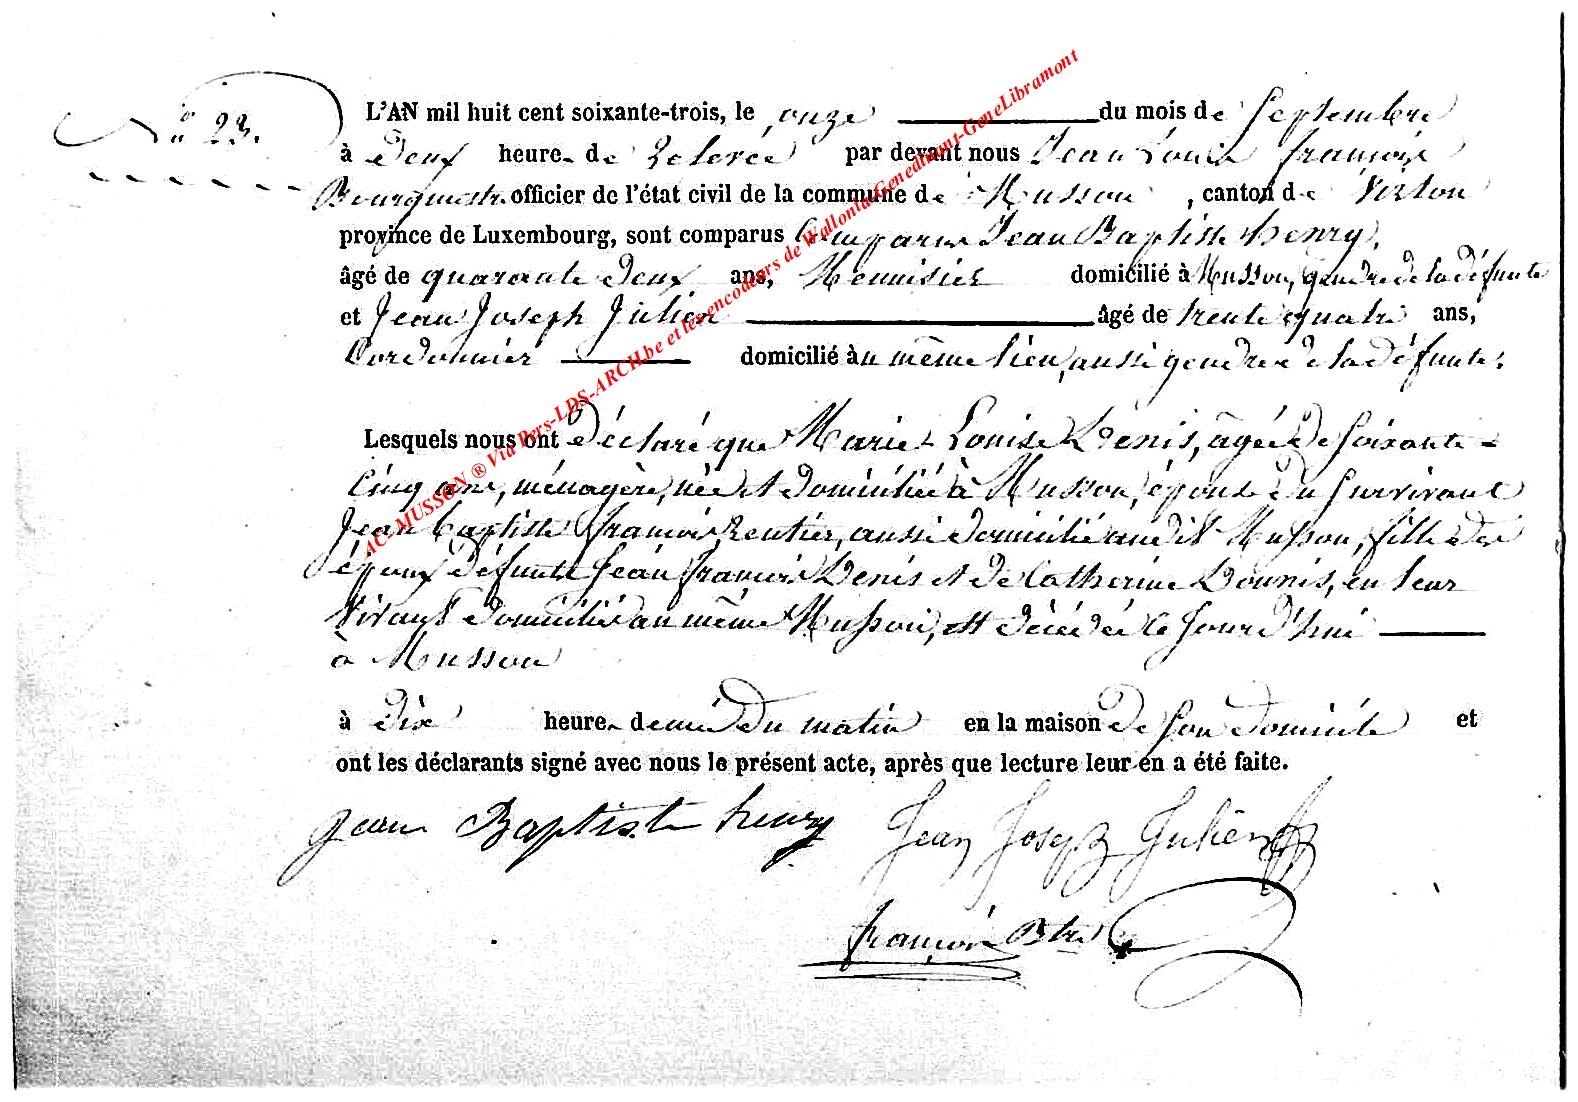 N° 23.
L'AN mil huit cent soixante-trois, le onze du mois de Septembre
à deux heures de relevée par devant nous Jean Louis François
Bourgmestre officier de l'état civil de la commune de Musson, canton de Virton
province de Luxembourg, sont comparus Comparus Jean Baptiste henry,
âgé de quarante deux ans, Menuisier domicilié à Musson, gendre de la défunte
et Jean Joseph Julien âgé de trente quatre ans,
Cordonnier domicilié au même lieu, aussi gendre de la défunte.
Lesquels nous ont déclaré que Marie Louise Denis, agée de soixante-
cinq ans, ménagère, née et domiciliée à Musson, épouse du survivant
Jean Baptiste François, Rentier, aussi domicilié audit Musson, fille des
époux défunts Jean François Denis et de Catherine, en leur
vivant domiciliés au même Musson, est décédée ce jourd'hui
à Musson
à dix heures demie du matin en la maison de son domicile et
ont les déclarants signé avec nous le présent acte, après que lecture leur en a été faite.
Jean Baptiste henry Jean Joseph Julien
françois Btre
AC-MUSSON ® Via Pers-LDS-ARCH.be et les encodeurs de Wallonia-Genedinant-GeneLibramont